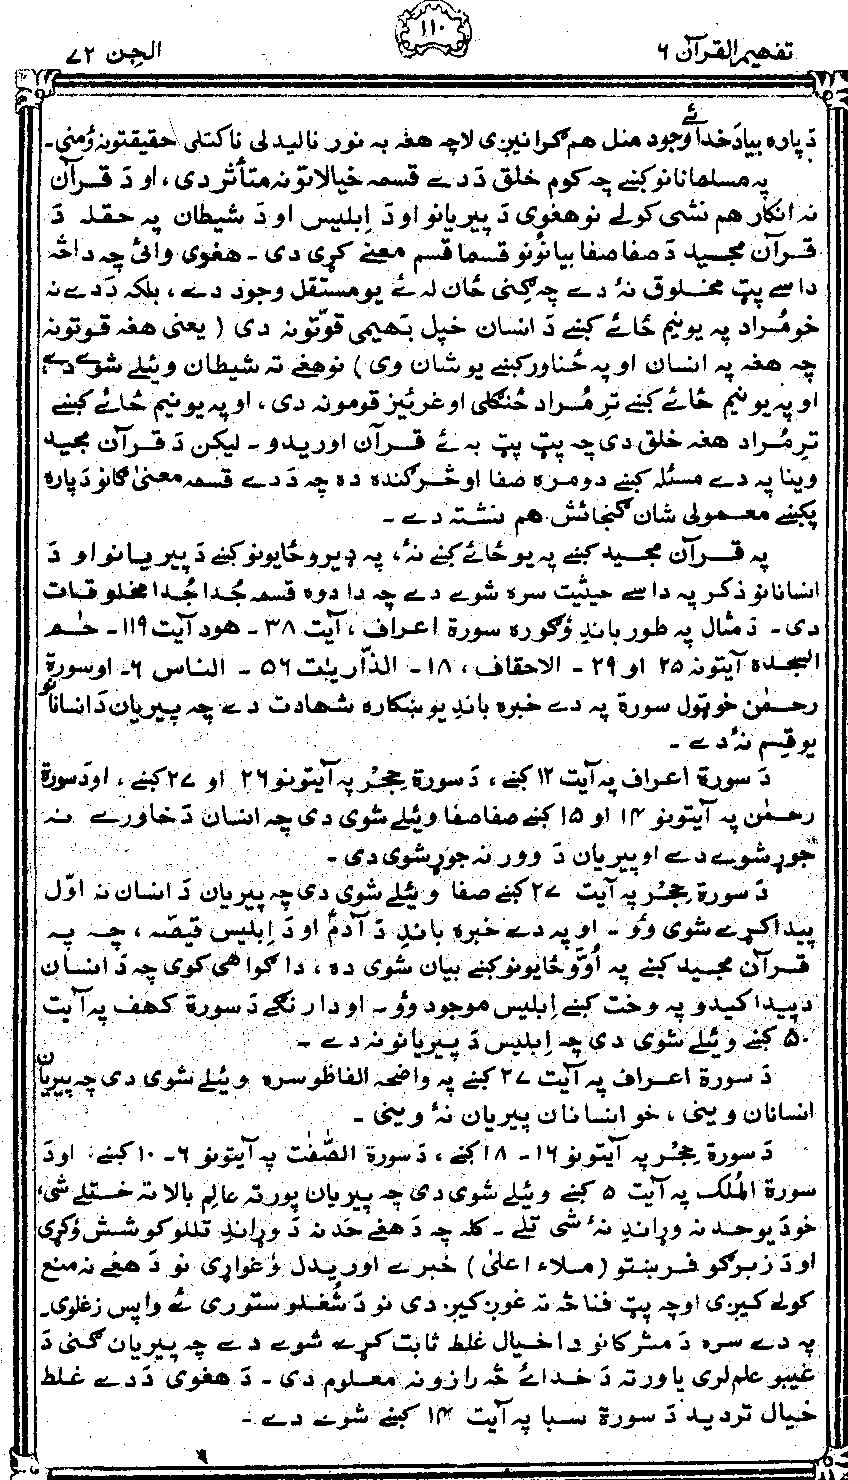 تفهيم القرآن ۶
۱۱۰
الجن ۷۲
دَ پاره بيا دَ خدائے وجود منل هم گرانيږى لاچه هغه په نور ناليدلى ناکتلى حقيقتونه ؤمنى۔
په مسلمانانو کښے چه کوم خلق دَ دے قسمه خيالاتو نه متأثر دى، او دَ قرآن
نه انکار هم نشى کولے نو هغوى دَ پيريانو او دَ اِبليس او دَ شيطان په حقله دَ
قرآن مجيد دَ صفا صفا بياننو نو قسما قسم معنے کړى دى۔ هغوى وائى چه دا څه
داسے پټ مخلوق نۀ دے چه ګنى ځان له ئے يو مستقل وجود دے، بلکه دَ دے نه
خو مُراد په يو نيم ځائے کښے دَ انسان خپل بَهيمى قوّتونه دى ( يعنى هغه قوتونه
چه هغه په انسان او په ځناور کښے يو شان وى ) نو هغے ته شيطان وئيلے شوے دے،
او په يو نيم ځائے کښے ترِ مُراد ځنګلى او غرئيز قومونه دى، او په يو نيم ځائے کښے
ترِ مُراد هغه خلق دى چه پټ پټ به ئے قرآن اوريدو۔ ليکن دَ قرآن مجيد
وينا په دے مسئله کښے دومره صفا او څرګنده ده چه دَ دے قسمه معنىٰ ګانو دَ پاره
پکښے معمولى شان ګنجائش هم نشته دے۔
په قرآن مجيد کښے په يو ځائے کښے نۀ، په ډيرو ځايونو کښے دَ پيريانو او دَ
انسانانو ذکر په داسے حيثيت سره شوے دے چه دا دوه قسمه جُدا جُدا مخلوقات
دى۔ دَ مثال په طور باندِ ؤګوره سورة اعراف، آيت ۳۸۔ هود آيت ۱۱۹۔ حٰم
السجده آيتونه ۲۵ او ۲۹۔ الاحقاف، ۱۸۔ الذّاريٰت ۵۶۔ الناس ۶۔ او سورة
رحمٰن خو ټول سورة په دے خبره باندِ يو ښکاره شهادت دے چه پيريان دَ انسانانو
يو قِسم نۀ دے۔
دَ سورة اعراف په آيت ۱۲ کښے، دَ سورة حِجر په آيتونو ۲۶ او ۲۷ کښے، او دَ سورة
رحمٰن په آيتونو ۱۴ او ۱۵ کښے صفا صفا وئيلے شوى دى چه انسان دَ خاورے نه
جوړ شوے دے او پيريان دَ وور نه جوړ شوى دى۔
دَ سورة حِجر په آيت ۲۷ کښے صفا وئيلے شوى دى چه پيريان دَ انسان نه اوّل
پيدا کړے شوى وؤ۔ او په دے خبره باندِ دَ آدمؑ او دَ اِبليس قيصّه، چه په
قرآن مجيد کښے په اُوؤ ځايونو کښے بيان شوى ده، دا ګواهى کوى چه دَ انسان
دَ پيدا کيدو په وخت کښے اِبليس موجود وؤ۔ او دارنګے دَ سورة کهف په آيت
۵۰ کښے وئيلے شوى دى چه اِبليس دَ پيريانو نه دے۔
دَ سورة اعراف په آيت ۲۷ کښے په واضحه الفاظو سره وئيلے شوى دى چه پيريان
انسانان وينى، خو انسانان پيريان نۀ وينى۔
دَ سورة حِجر په آيتونو ۱۶۔ ۱۸ کښے، دَ سورة الصّٰفّٰت په آيتونو ۶۔ ۱۰ کښے، او دَ
سورة المُلک په آيت ۵ کښے وئيلے شوى دى چه پيريان پورته عالمِ بالا ته ختلے شى،
خو دَ يو حد نه وړاندِ نۀ شى تلے۔ کله چه دَ هغے حَد نه دَ وړاندِ تللو کوشش ؤکړى
او دَ زبرګو فرښتو ( ملاء اعلىٰ ) خبرے اوريدل ؤغواړى نو دَ هغے نه منع
کولے کيږى او چه پټ فنا څه ته غوږ کيږدى نو دَ شُغلو ستورى ئے واپس زغلوى۔
په دے سره دَ مشرکانو دا خيال غلط ثابت کړے شوے دے چه پيريان ګنى دَ
غيبو علم لرى يا ورته دَ خدائے څه رازونه معلوم دى۔ دَ هغوى دَ دے غلط
خيال ترديد دَ سورة سبا په آيت ۱۴ کښے شوے دے۔